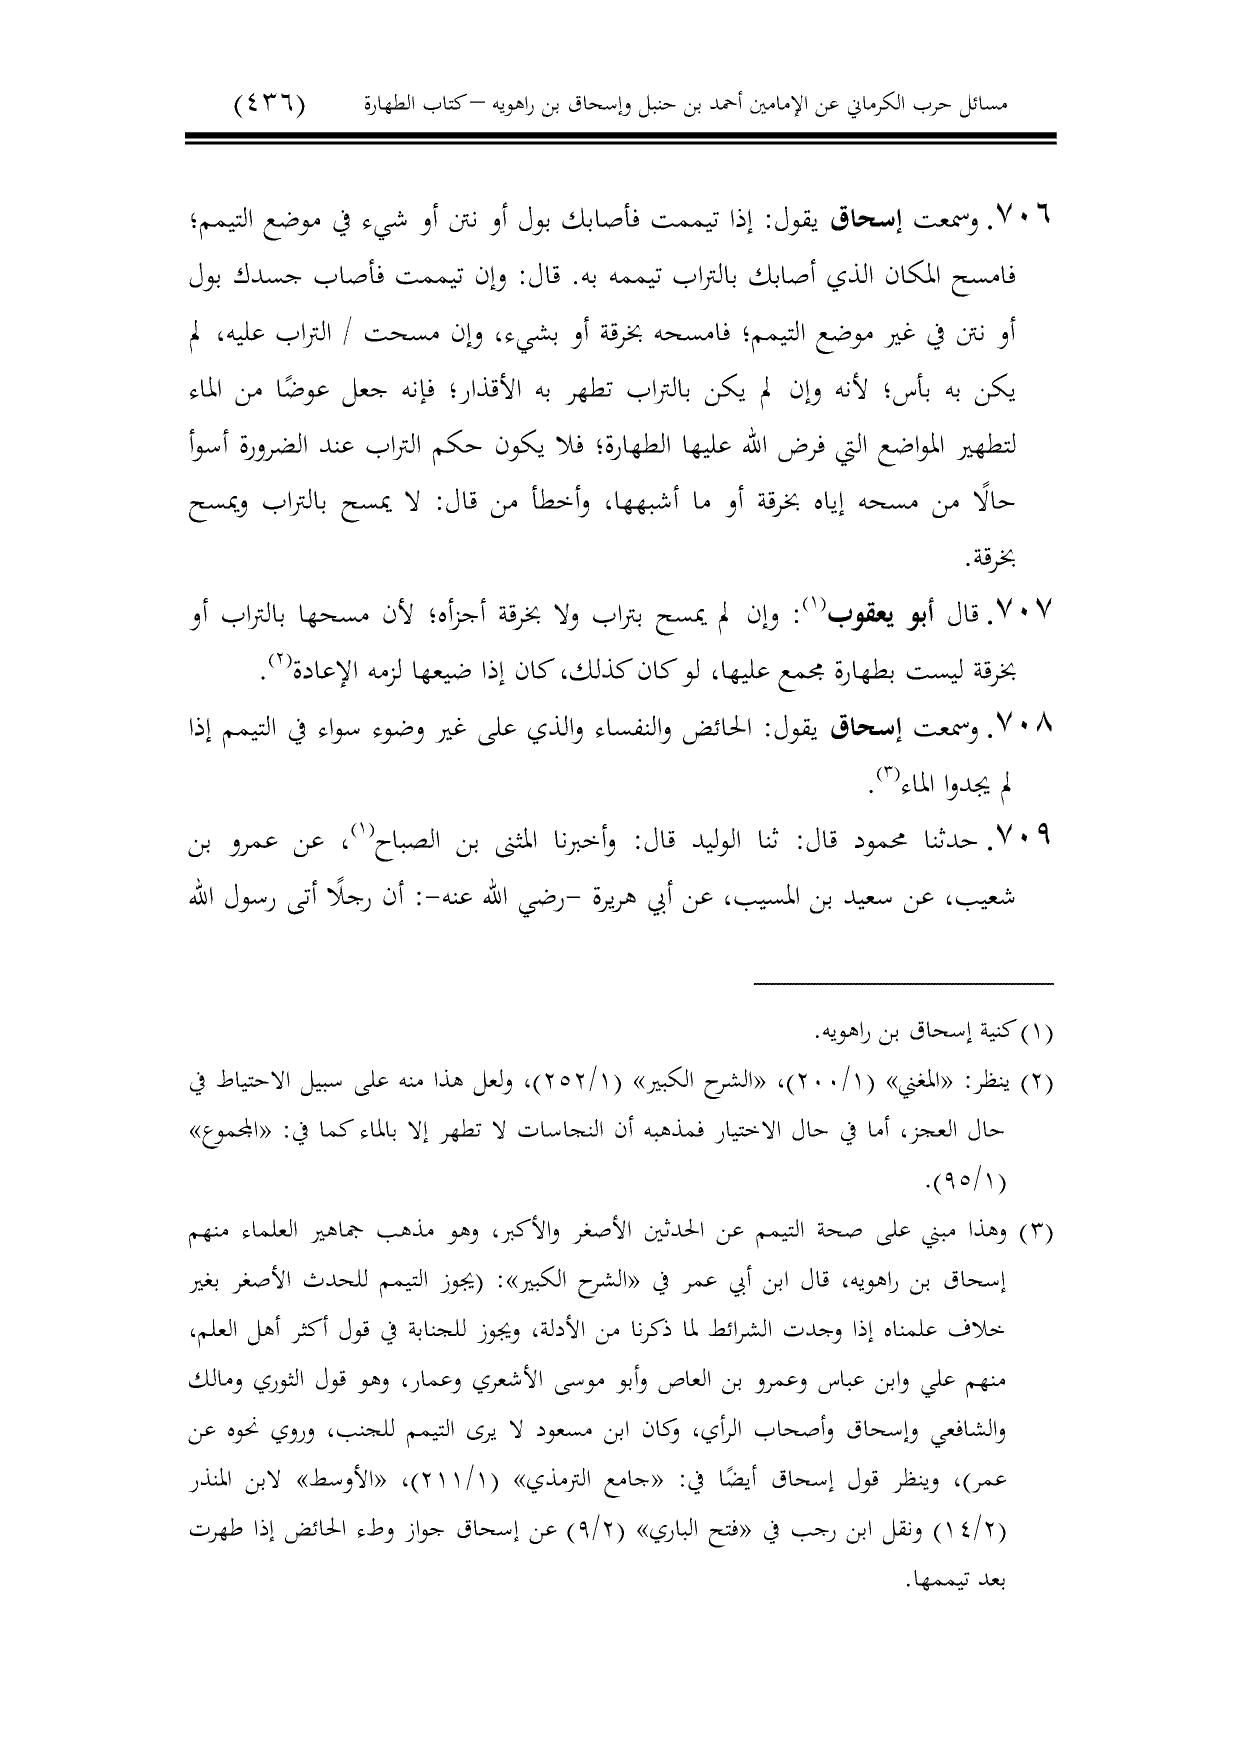 مسائل حرب الكرماني عن الإمامين أحمد بن حنبل وإسحاق بن راهويه –كتاب الطهارة (٤٣٦)
٧٠٦. وسمعت إسحاق يقول: إذا تيممت فأصابك بول أو نتن أو شيء في موضع التيمم؛
فامسح المكان الذي أصابك بالتراب تيممه به. قال: وإن تيممت فأصاب جسدك بول
أو نتن في غير موضع التيمم؛ فامسحه بخرقة أو بشيء، وإن مسحت / التراب عليه، لم
يكن به بأس؛ لأنه وإن لم يكن بالتراب تطهر به الأقذار؛ فإنه جعل عوضًا من الماء
لتطهير المواضع التي فرض الله عليها الطهارة؛ فلا يكون حكم التراب عند الضرورة أسوأ
حالًا من مسحه إياه بخرقة أو ما أشبهها، وأخطأ من قال: لا يمسح بالتراب ويمسح
بخرقة.
٧٠٧. قال أبو يعقوب(١): وإن لم يمسح بتراب ولا بخرقة أجزأه؛ لأن مسحها بالتراب أو
بخرقة ليست بطهارة مجمع عليها، لو كان كذلك، كان إذا ضيعها لزمه الإعادة(٢).
٧٠٨. وسمعت إسحاق يقول: الحائض والنفساء والذي على غير وضوء سواء في التيمم إذا
لم يجدوا الماء(٣).
٧٠٩. حدثنا محمود قال: ثنا الوليد قال: وأخبرنا المثنى بن الصباح(١)، عن عمرو بن
شعيب، عن سعيد بن المسيب، عن أبي هريرة –رضي الله عنه–: أن رجلًا أتى رسول الله
(١) كنية إسحاق بن راهويه.
(٢) ينظر: «المغني» (٢٠٠/١)، «الشرح الكبير» (٢٥٢/١)، ولعل هذا منه على سبيل الاحتياط في
حال العجز، أما في حال الاختيار فمذهبه أن النجاسات لا تطهر إلا بالماء كما في: «المجموع»
(٩٥/١).
(٣) وهذا مبني على صحة التيمم عن الحدثين الأصغر والأكبر، وهو مذهب جماهير العلماء منهم
إسحاق بن راهويه، قال ابن أبي عمر في «الشرح الكبير»: (يجوز التيمم للحدث الأصغر بغير
خلاف علمناه إذا وجدت الشرائط لما ذكرنا من الأدلة، ويجوز للجنابة في قول أكثر أهل العلم،
منهم علي وابن عباس وعمرو بن العاص وأبو موسى الأشعري وعمار، وهو قول الثوري ومالك
والشافعي وإسحاق وأصحاب الرأي، وكان ابن مسعود لا يرى التيمم للجنب، وروي نحوه عن
عمر)، وينظر قول إسحاق أيضًا في: «جامع الترمذي» (٢١١/١)، «الأوسط» لابن المنذر
(١٤/٢) ونقل ابن رجب في «فتح الباري» (٩/٢) عن إسحاق جواز وطء الحائض إذا طهرت
بعد تيممها.